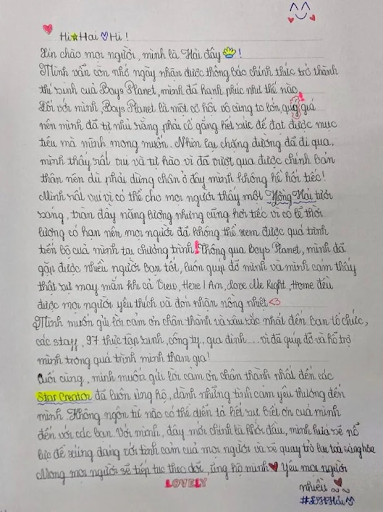 Hi ★ Hai ♡ Hi !
Xin chào mọi người, mình là Hải đây !
Mình vẫn còn nhớ ngày nhận được thông báo chính thức trở thành
thí sinh của Boys Planet, mình đã hạnh phúc như thế nào
Đối với mình, Boys Planet là một cơ hội vô cùng to lớn, quý giá
nên mình đã tự nhủ rằng phải cố gắng hết sức để đạt được mục
tiêu mà mình mong muốn. Nhìn lại chặng đường đã đi qua,
mình thấy rất vui và tự hào vì đã vượt qua được chính bản
thân nên dù phải dừng chân ở đây mình không hề hối tiếc!
Mình rất vui vì có thể cho mọi người thấy một Hồng Hải tươi
sáng, tràn đầy năng lượng nhưng cũng hơi tiếc vì có lẽ thời
lượng có hạn nên mọi người đã không thể xem được quá trình
tiến bộ của mình tại chương trình! Thông qua Boys Planet, mình đã
gặp được nhiều người bạn tốt, luôn giúp đỡ mình và mình cảm thấy
thật sự may mắn khi cả Zero, Here I Am, Love Me Right, Home đều
được mọi người yêu thích và đón nhận nồng nhiệt
Mình muốn gửi lời cảm ơn chân thành và sâu sắc nhất đến Ban tổ chức,
các staff, 97 thực tập sinh, công ty, gia đình ... vì đã giúp đỡ và hỗ trợ
mình trong quá trình mình tham gia!
Cuối cùng, mình muốn gửi lời cảm ơn chân thành nhất đến các
Star Creator đã luôn ủng hộ, dành những tình cảm yêu thương đến
mình. Không ngôn từ nào có thể diễn tả hết sự biết ơn của mình
đến với các bạn. Với mình, đây mới chính là khởi đầu, mình hứa sẽ nỗ
lực để xứng đáng với tình cảm của mọi người và sẽ quay trở lại
Mong mọi người sẽ tiếp tục theo dõi, ủng hộ mình ♥ Yêu mọi người
nhiều
LOVELY